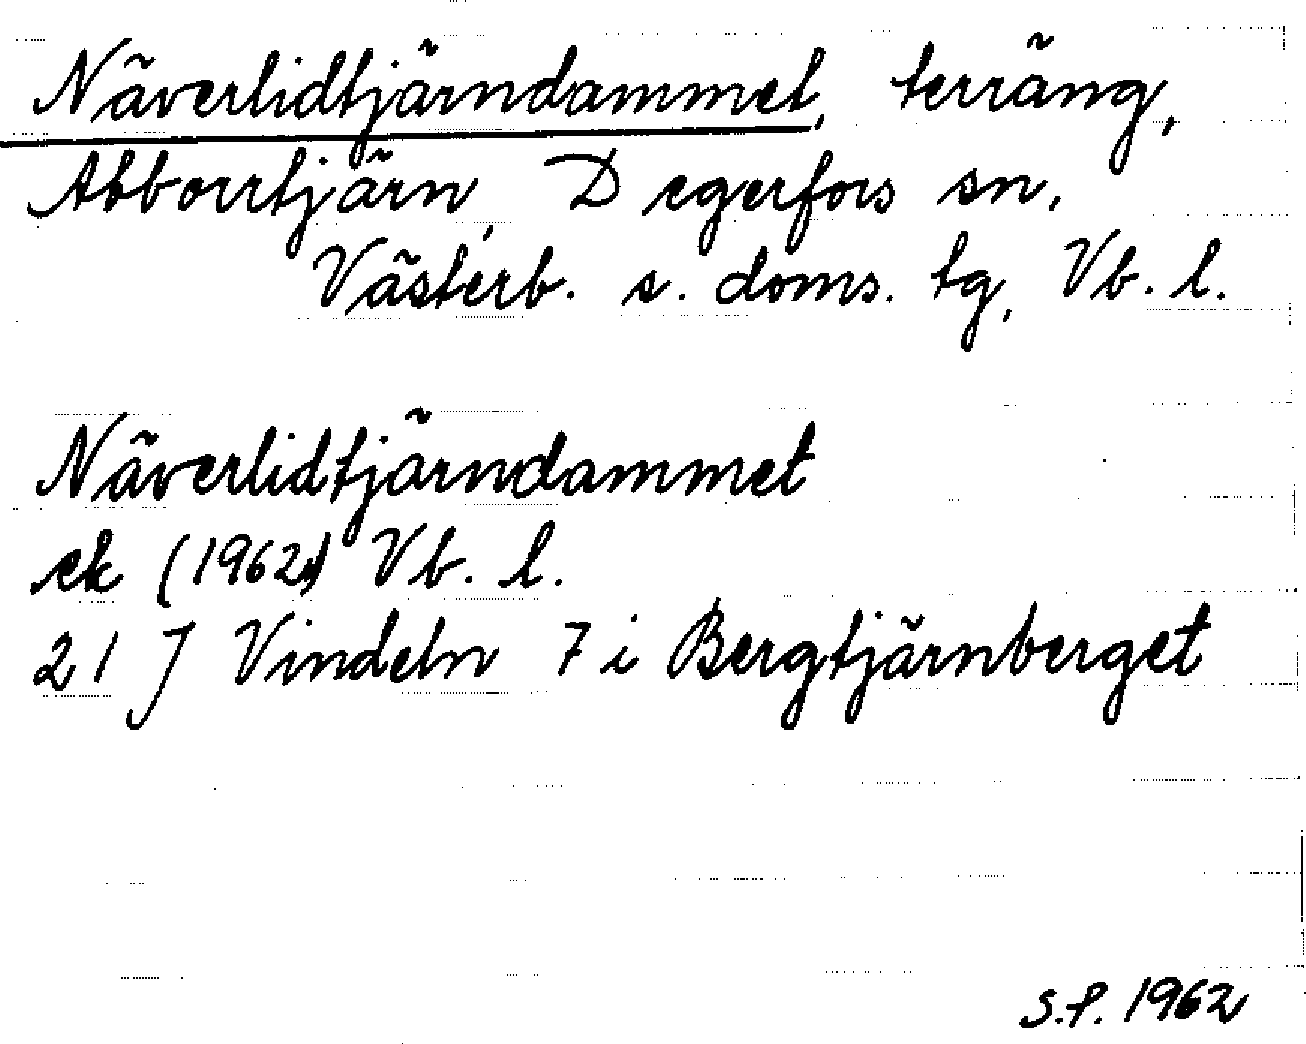 Näverlidtjärndammet, terräng,
Abborrtjärn, Degerfors sn,
Västerb. s. doms. tg, Vb. l.
Näverlidtjärndammet
ek (1962) Vb. l.
21 J Vindeln 7 i Bergtjärnberget
S.P. 1962